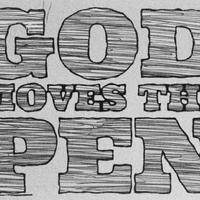 GOD
MOVES THE
PEN